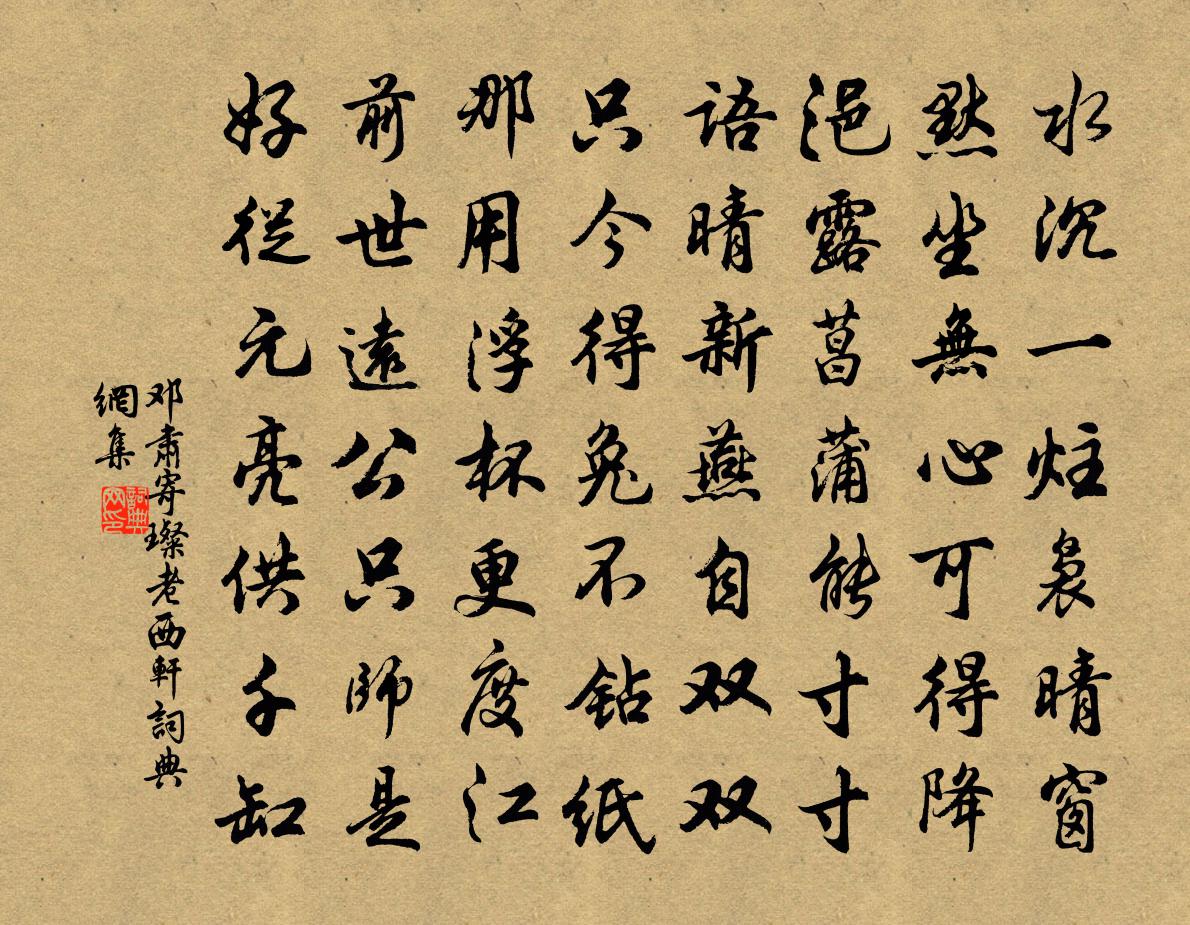 水沉一炷袅晴窗
默坐無心可得降
浥露菖蒲能寸寸
語晴新燕自双双
只今得兔不钻紙
那用浮杯更度江
前世遠公只師是
好從元亮供千缸
邓肅寄璨老西軒詞典
網集
詞典網印